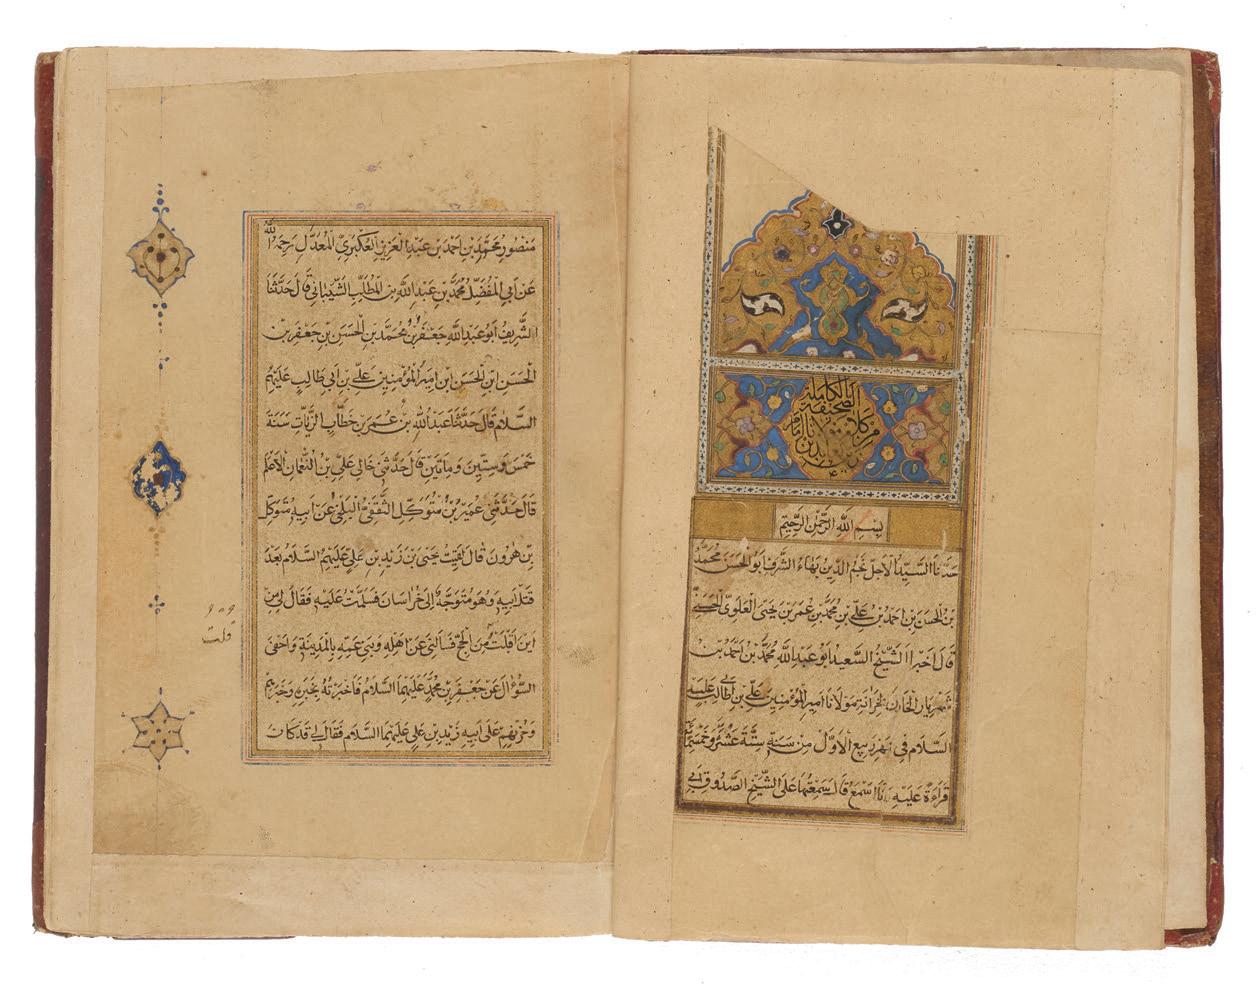 الصحيفة الكاملة
من كلام
بسم الله الرحمن الرحيم
حدثنا السيد الاجل نجم الدين بهاء الشرف ابو الحسن محمد
بن الحسن بن احمد بن علي بن محمد بن عمر بن يحيى العلوي الحسيني
قال اخبرنا الشيخ السعيد ابو عبد الله محمد بن احمد بن
شهريار الخازن لخزانة مولانا امير المؤمنين علي بن ابي طالب عليه
السلام في شهر ربيع الاول من سنة ستة عشر وخمسمائة
قراءة عليه وانا اسمع قال سمعتها على الشيخ الصدوق ابي
منصور محمد بن احمد بن عبد العزيز العكبري المعدل رحمه الله
عن ابي المفضل محمد بن عبد الله بن المطلب الشيباني قال حدثنا
الشريف ابو عبد الله جعفر بن محمد بن الحسن بن جعفر بن
الحسن بن الحسن بن امير المؤمنين علي بن ابي طالب عليهم
السلام قال حدثنا عبد الله بن عمر بن خطاب الزيات سنة
خمس وستين ومأتين قال حدثني خالي علي بن النعمان الاعلم
قال حدثني عمير بن متوكل الثقفي البلخي عن ابيه متوكل
بن هرون قال لقيت يحيى بن زيد بن علي عليهم السلام بعد
قتل ابيه وهو متوجه الى خراسان فسلمت عليه فقال لي من
اين اقبلت من الحج فسألني عن اهله وبني عمه بالمدينة واحفى
السؤال عن جعفر بن محمد عليهما السلام فاخبرته بخبره وخبرهم
وحزنهم على ابيه زيد بن علي عليهما السلام فقال لي قد كان
قلت